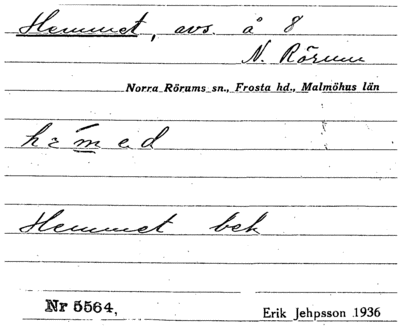 Hemmet, avs. å 8
N. Rörum
Norra Rörums sn., Frosta hd., Malmöhus län
Hemmet bek
Nr 5564,
Erik Jehpsson 1936